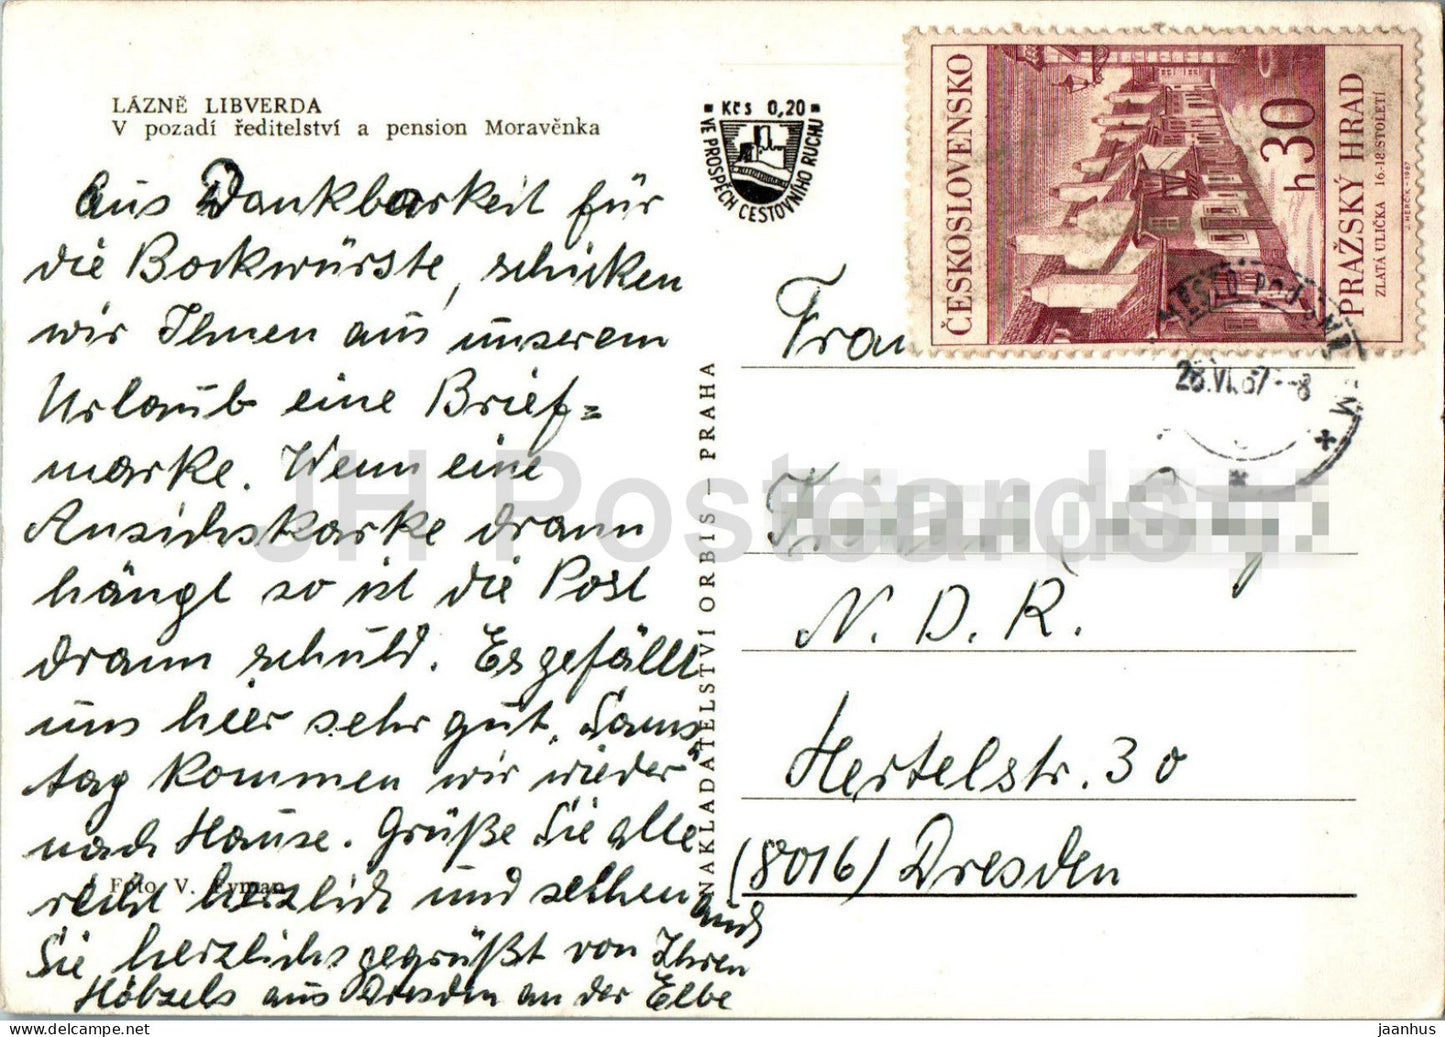 LÁZNĚ LIBVERDA
V pozadí ředitelství a pension Moravěnka
Aus Dankbarkeit für
die Bockwürste, schicken
wir Ihnen aus unserem
Urlaub eine Brief=
marke. Wenn eine
Ansichskarke drann
hängt so ist die Post
drann schuld. Es gefällt
uns hier sehr gut. Sams
tag kommen wir wieder
nach Hause. Grüße Sie alle
recht herzlich und seihen auch
Sie herzlichs gegrüßt von Ihren
Höbzels aus Dresden an der Elbe
Foto V. Fyman
Kčs 0,20
VE PROSPĚCH CESTOVNÍHO RUCHU
NAKLADATELSTVÍ ORBIS – PRAHA
ČESKOSLOVENSKO
h 30
PRAŽSKÝ HRAD
ZLATÁ ULIČKA 16.-18. STOLETÍ
J. HERČÍK - 1967
MĚSTO POD SMRKEM
28.VI.67-8
Frau
N. D. R.
Hertelstr. 30
(8016) Dresden
JH Postcards
jaanhus